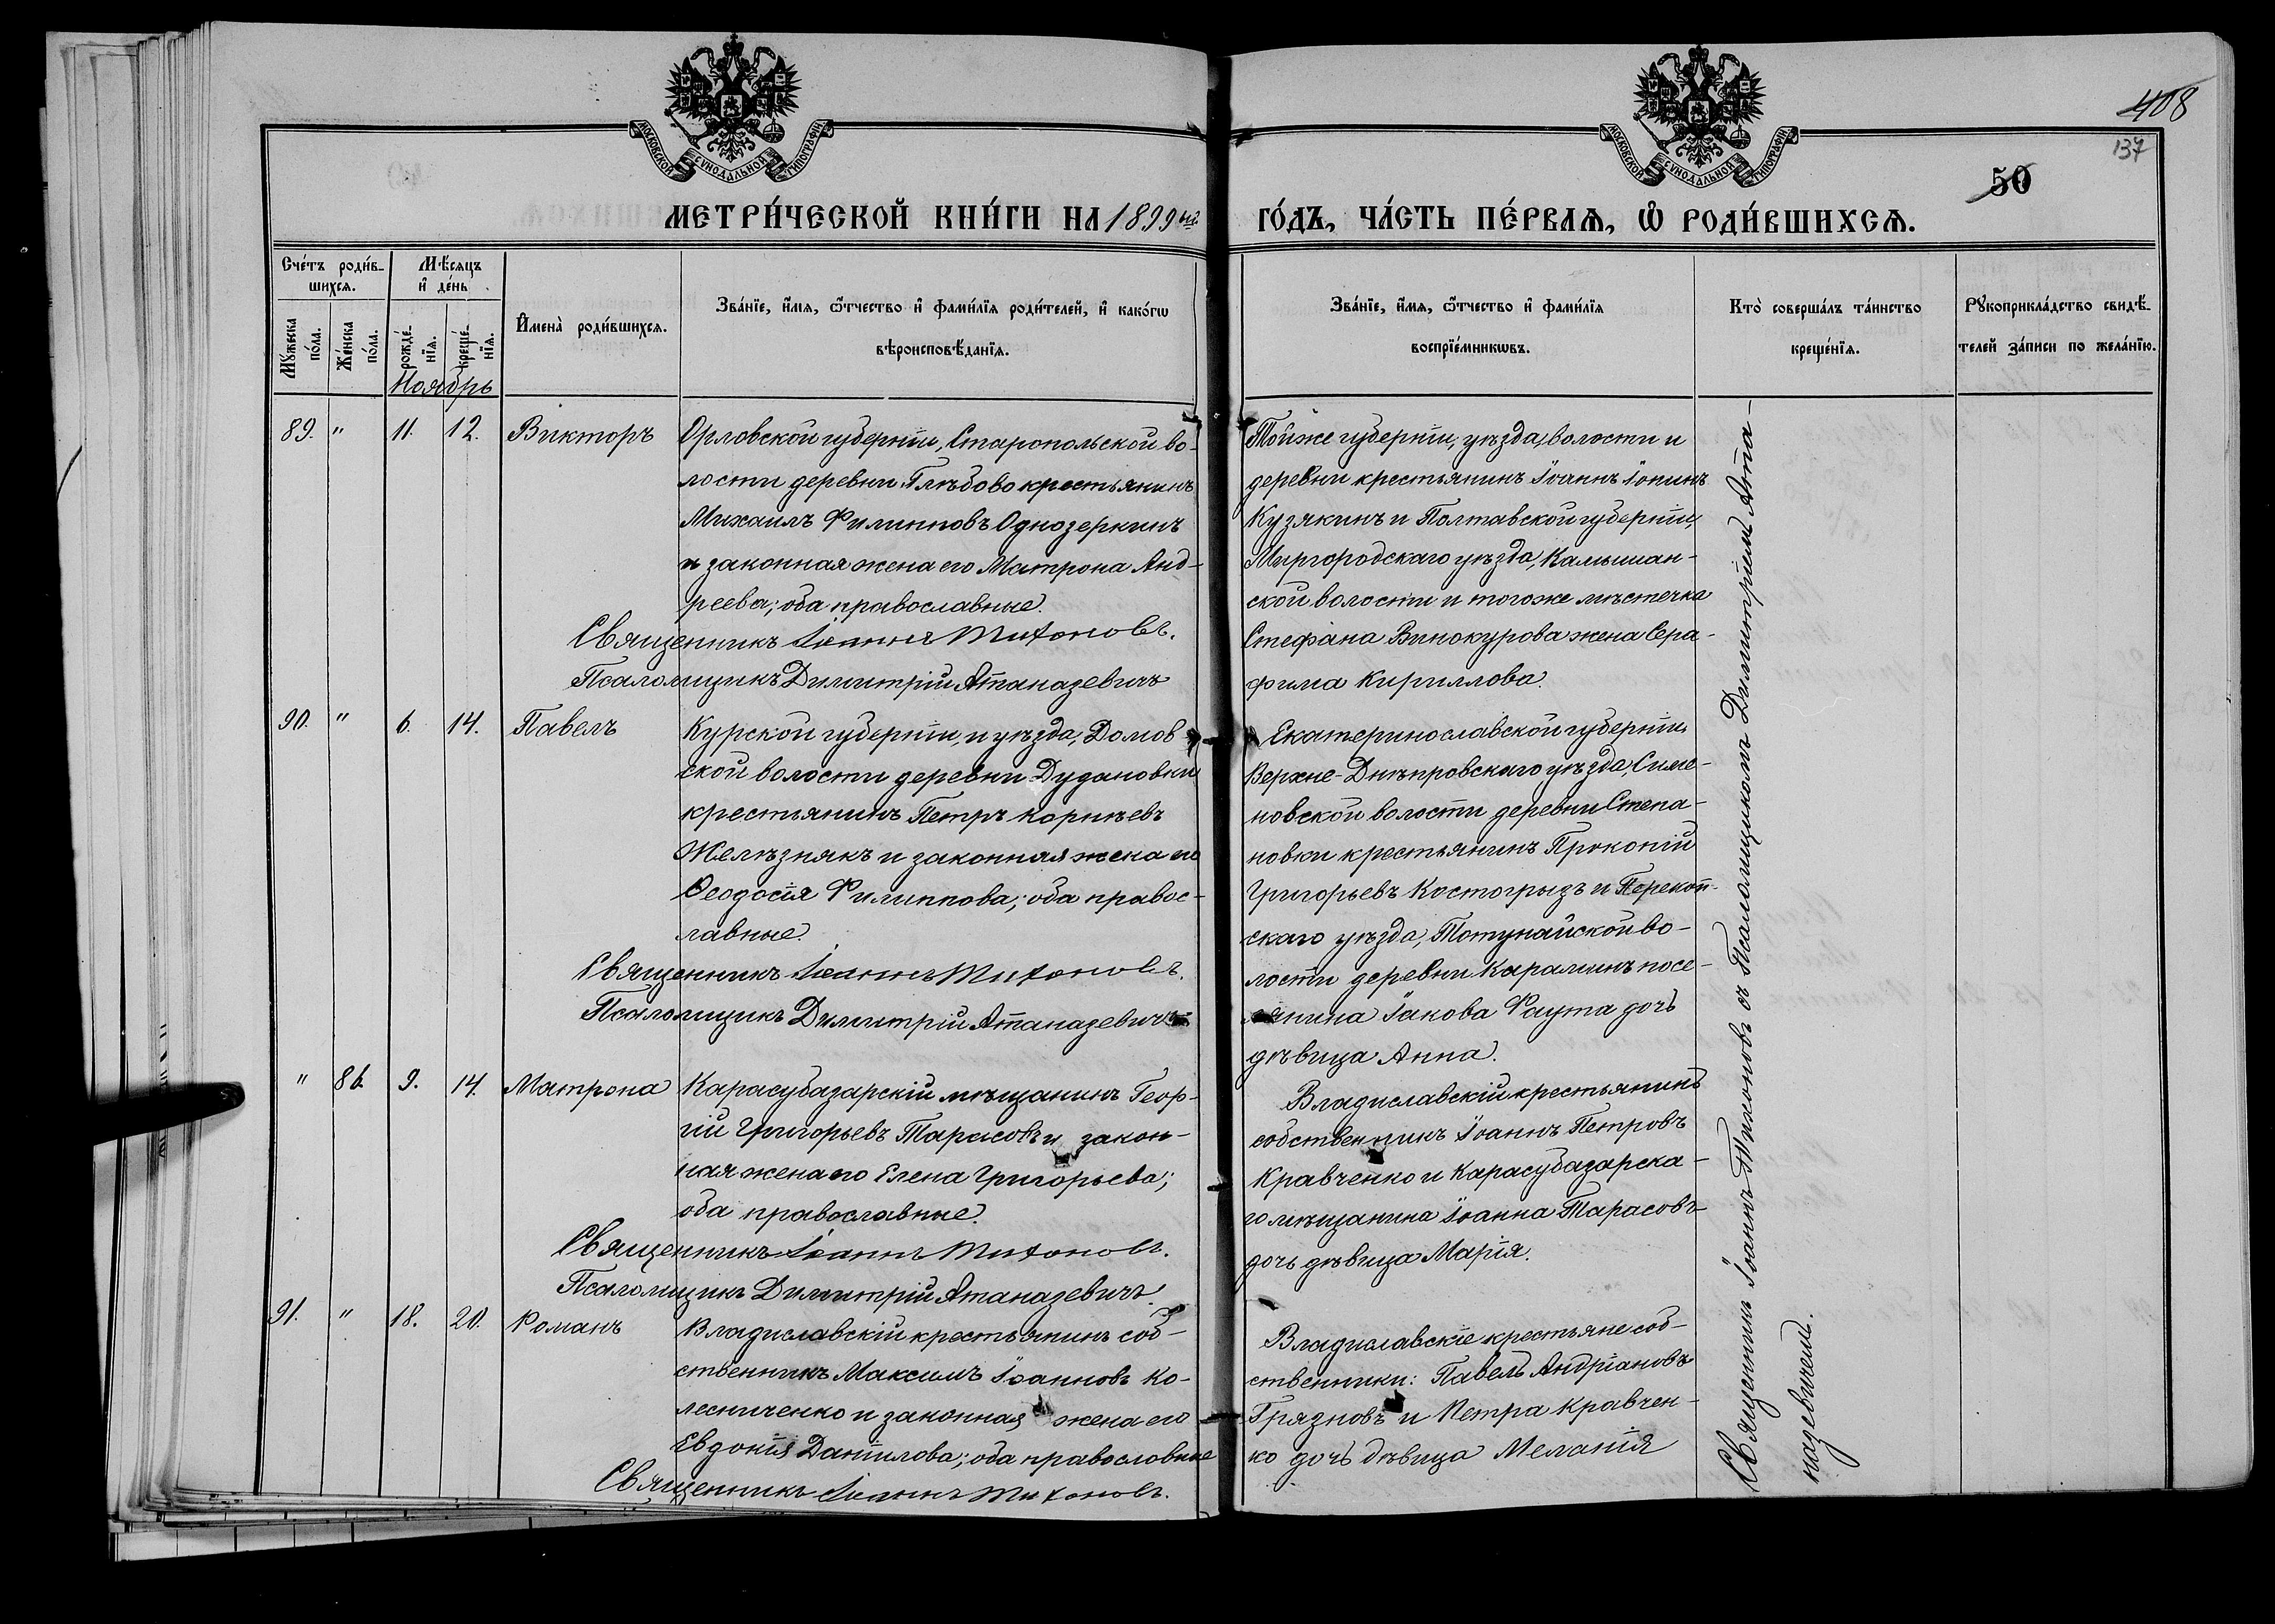 408
137
50
МОСКОВСКОЙ СѴНОДАЛЬНОЙ ТИПОГРАФІИ
МОСКОВСКОЙ СѴНОДАЛЬНОЙ ТИПОГРАФІИ
МЕТРИ́ЧЕСКОЙ КНИ́ГИ НА 1899 й
ГО́ДЪ, ЧА́СТЬ ПЕ́РВАѦ, Ѡ҆ РОДИ́ВШИХСѦ.
Сче́тъ роди́в-
шихсѧ.
Мѣ́сяцъ
и҆ де́нь
Мꙋ́жеска
по́ла.
Же́нска
по́ла.
рожде́-
нїѧ.
креще́-
нїѧ.
И҆мена̀ роди́вшихсѧ.
Зва́нїе, и҆́мѧ, ѻ҆́тчество и҆ фами́лїѧ роди́телей, и҆ како́гѡ
вѣроисповѣ́данїѧ.
Зва́нїе, и҆́мѧ, ѻ҆́тчество и҆ фами́лїѧ
воспрїе́мникѡвъ.
Кто̀ соверша́лъ та́инство
креще́нїѧ.
Рꙋкоприкла́дство свидѣ́-
телей за́писи по жела́нїю.
Ноябрь
89. " 11. 12. Викторъ
Орловской губерніи, Старопольской во-
лости деревни Глѣбово крестьянинъ
Михаилъ Филипповъ Однозеркинъ
и законная жена его Матрона Анд-
реева; оба православные.
Священникъ Іоаннъ Тихоновъ.
Псаломщикъ Димитрій Атаназевичъ
Тойже губерніи, уѣзда, волости и
деревни крестьянинъ Іоаннъ Іонинъ
Кузякинъ и Полтавской губерніи,
Миргородскаго уѣзда, Камышан-
ской волости и тогоже мѣстечка
Стефана Винокурова жена Сера-
фима Кириллова.
90. " 6. 14. Павелъ
Курской губерніи, и уѣзда, Домов
ской волости деревни Дудановки
крестьянинъ Петръ Корнѣевъ
Желѣзнякъ и законная жена его
Ѳеодосія Филиппова; оба правос-
лавные.
Священникъ Іоаннъ Тихоновъ.
Псаломщикъ Димитрій Атаназевичъ
Екатеринославской губерніи
Верхне-Днѣпровскаго уѣзда, Симе-
новской волости деревни Степа-
новки крестьянинъ Прокопій
Григорьевъ Костогрызъ и Перекоп-
скаго уѣзда, Тотунайской во-
лости деревни Караминъ посе-
лянина Іакова Фаута дочь
дѣвица Анна.
" 86. 9. 14. Матрона
Карасубазарскій мѣщанинъ Геор-
гій Григорьевъ Тарасовъ и закон-
ная жена его Елена Григорьева;
оба православные.
Священникъ Іоаннъ Тихоновъ.
Псаломщикъ Димитрій Атаназевичъ.
Владиславскій крестьянинъ
собственникъ Іоаннъ Петровъ
Кравченко и Карасубазарска-
го мѣщанина Іоанна Тарасовъ
дочь дѣвица Марія.
91. " 18. 20. Романъ
Владиславскій крестьянинъ соб-
ственникъ Максимъ Іоанновъ Ко-
лесниченко и законная жена его
Евдокія Даніилова; оба православные
Священникъ Іоаннъ Тихоновъ.
Владиславскіе крестьяне соб-
ственники: Павелъ Андріановъ
Грязновъ и Петра Кравчен-
ко дочь дѣвица Меланія
Священникъ Іоаннъ Тихоновъ съ Псаломщикомъ Димитріемъ Ата-
назевичемъ.